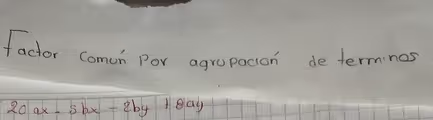 Factor Común Por agrupación de terminos
20ax - 5bx - 2by + 8ay